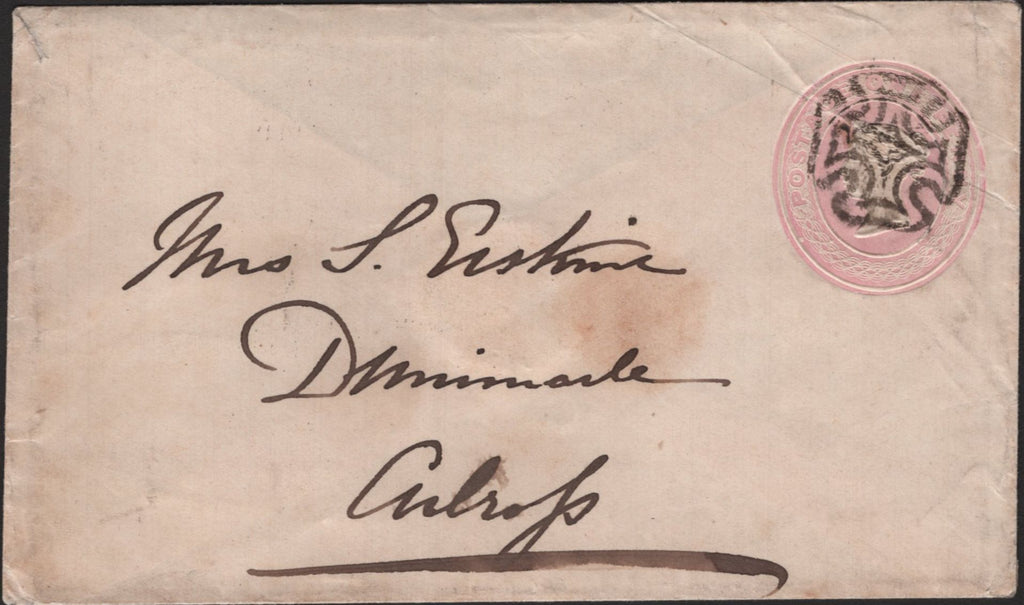 Mrs S. Erskine
Dunimarle
Culross
POST